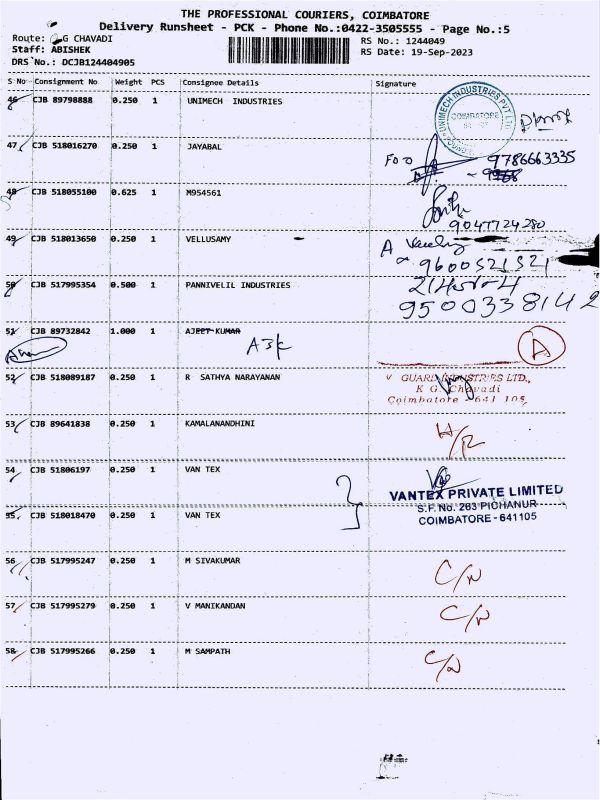 THE PROFESSIONAL COURIERS, COIMBATORE
Delivery Runsheet - PCK - Phone No.:0422-3505555 - Page No.:5
Route: G CHAVADI
RS No.: 1244049
Staff: ABISHEK
RS Date: 19-Sep-2023
DRS No.: DCJB124404905
S No Consignment No Weight PCS Consignee Details Signature
46 CJB 89798888 0.250 1 UNIMECH INDUSTRIES
UNIMECH INDUSTRIES PVT LTD
COIMBATORE
47 CJB 518016270 0.250 1 JAYABAL
9786663335
48 CJB 518055100 0.625 1 M954561
9047724280
49 CJB 518013650 0.250 1 VELLUSAMY
A
9600521321
50 CJB 517995354 0.500 1 PANNIVELIL INDUSTRIES
9500338142
51 CJB 89732842 1.000 1 AJEET KUMAR
A
52 CJB 518089187 0.250 1 R SATHYA NARAYANAN
V GUARD INDUSTRIES LTD.,
K G Chavadi
Coimbatore - 641 105.
53 CJB 89641838 0.250 1 KAMALANANDHINI
54 CJB 51806197 0.250 1 VAN TEX
VANTEX PRIVATE LIMITED
S.F.No. 263 PICHANUR
COIMBATORE - 641105
55 CJB 518018470 0.250 1 VAN TEX
56 CJB 517995247 0.250 1 M SIVAKUMAR
C/N
57 CJB 517995279 0.250 1 V MANIKANDAN
C/N
58 CJB 517995266 0.250 1 M SAMPATH
C/N